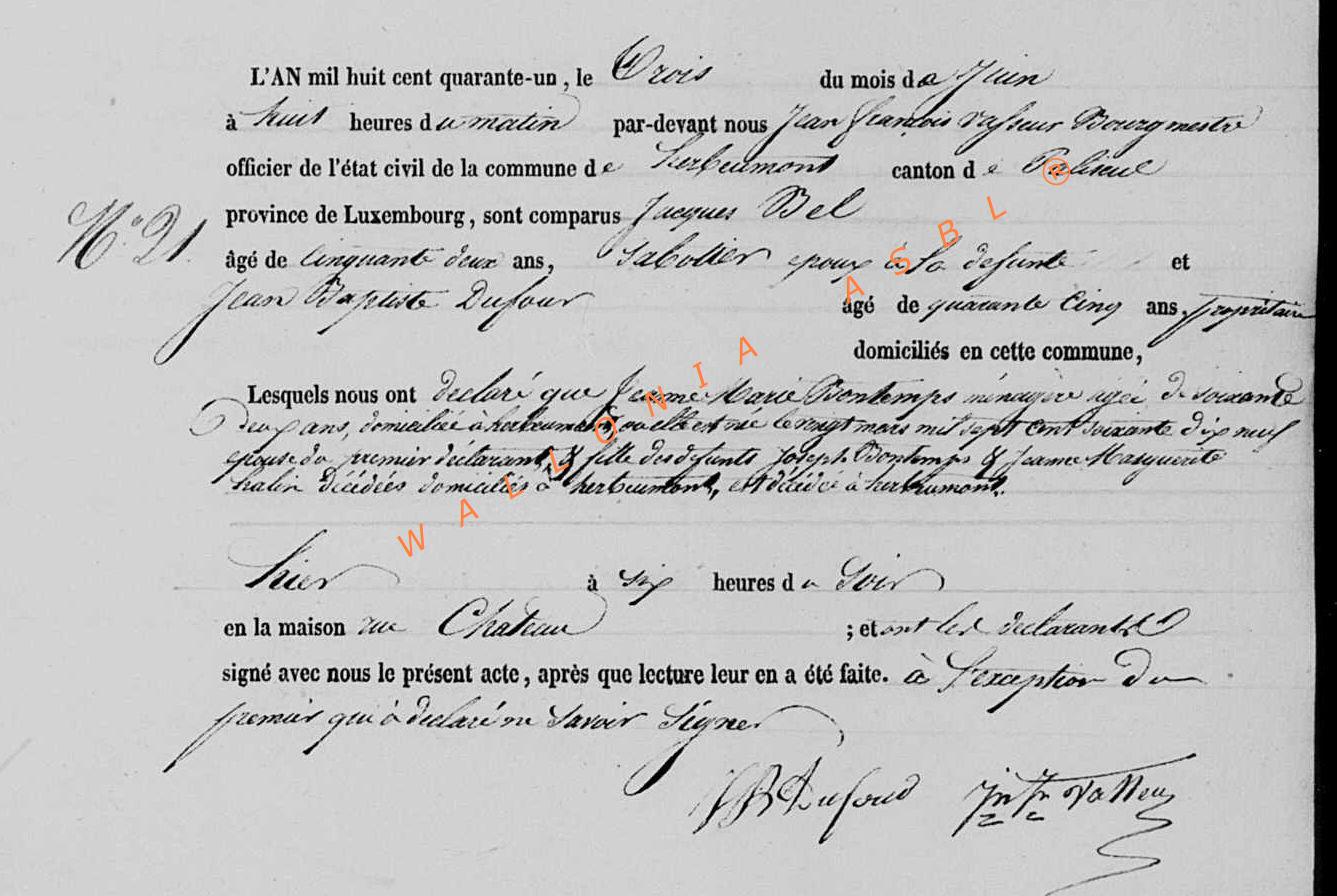 L'AN mil huit cent quarante-un, le Trois du mois de Juin
à huit heures du matin par-devant nous Jean françois Vasseur Bourgmestre
officier de l'état civil de la commune de herbeumont canton de Paliseul
province de Luxembourg, sont comparus Jacques Bel
N.o 21.
âgé de Cinquante deux ans, Sabotier epoux à la defunte et
Jean Baptiste Dufour âgé de quarante Cinq ans, propriétaire
domiciliés en cette commune,
Lesquels nous ont declaré que Jeanne Marie Bontemps ménagère agée de soixante
Deux ans, domiciliée à herbeumont, ou elle est née le vingt mars mil sept Cent soixante dix neuf
epouse du premier déclarant, & fille des defunts Joseph Bontemps & Jeanne Marguerite
halin Décédées domiciliés à herbeumont, est décédée à herbeumont.
hier à six heures du Soir
en la maison rue Chateau ; et ont les declarants
signé avec nous le présent acte, après que lecture leur en a été faite. à l'exception Du
premier qui à declaré ne Savoir Signer
JBDufour Jn fr Vasseur
WALLONIA ASBL ®